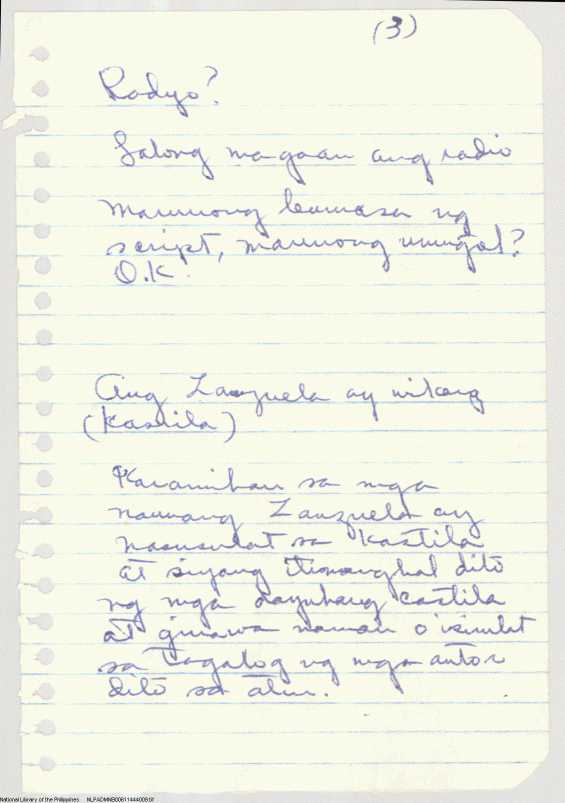 (3)
Radyo?
Lalong magaan ang radio
Marunong bumasa ng
script, marunong umungol?
O.K.
Ang Zarzuela ay wikang
(Kastila)
Karamihan sa mga
naunang Zarzuela ay
nasusulat sa Kastila
at siyang itinanghal dito
ng mga dayuhang castila
at ginawa naman o isinulat
sa Tagalog ng mga autor
dito sa atin.
National Library of the Philippines